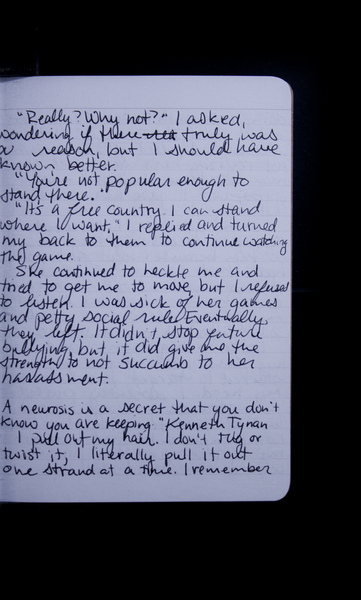 "Really? Why not?" I asked,
wondering if there truly was
a reason, but I should have
known better.
"You're not popular enough to
stand there."
"It's a free country. I can stand
where I want," I replied and turned
my back to them to continue watching
the game.
She continued to heckle me and
tried to get me to move, but I refused
to listen. I was sick of her games
and petty social rules. Eventually,
they left. It didn't stop future
bullying, but it did give me the
strength to not succumb to her
harassment.
A neurosis is a secret that you don't
know you are keeping. "Kenneth Tynan
I pull out my hair. I don't tug or
twist it, I literally pull it out
one strand at a time. I remember